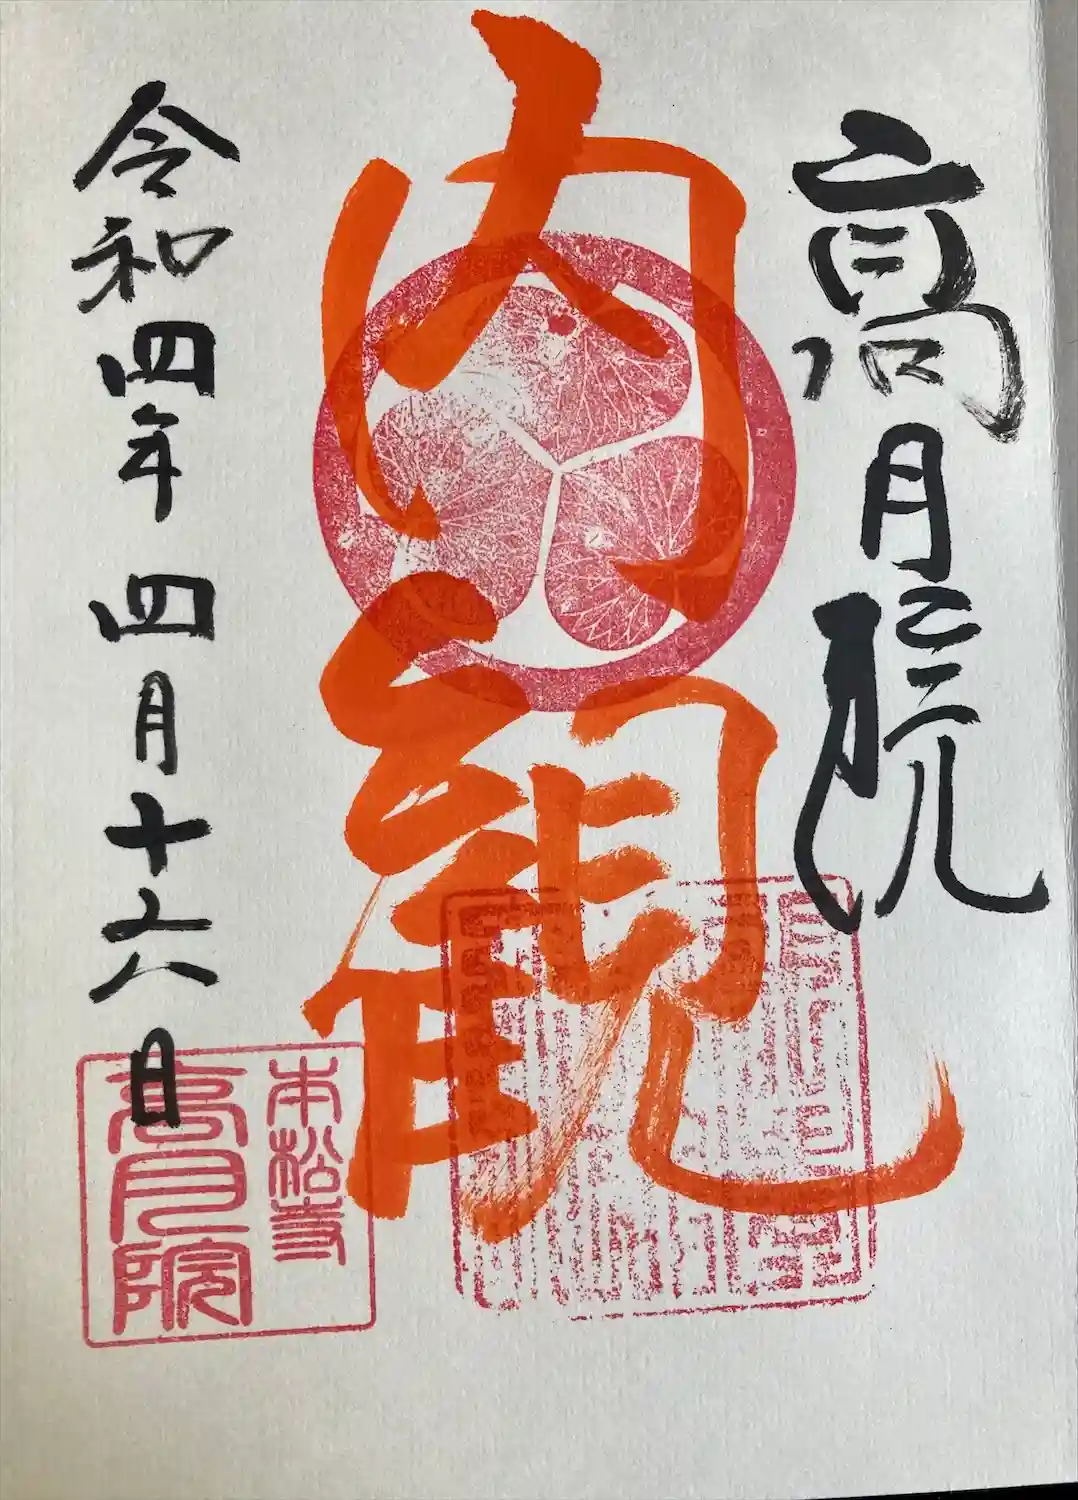 高月院
内観
令和四年四月十六日
本松寺
高月院